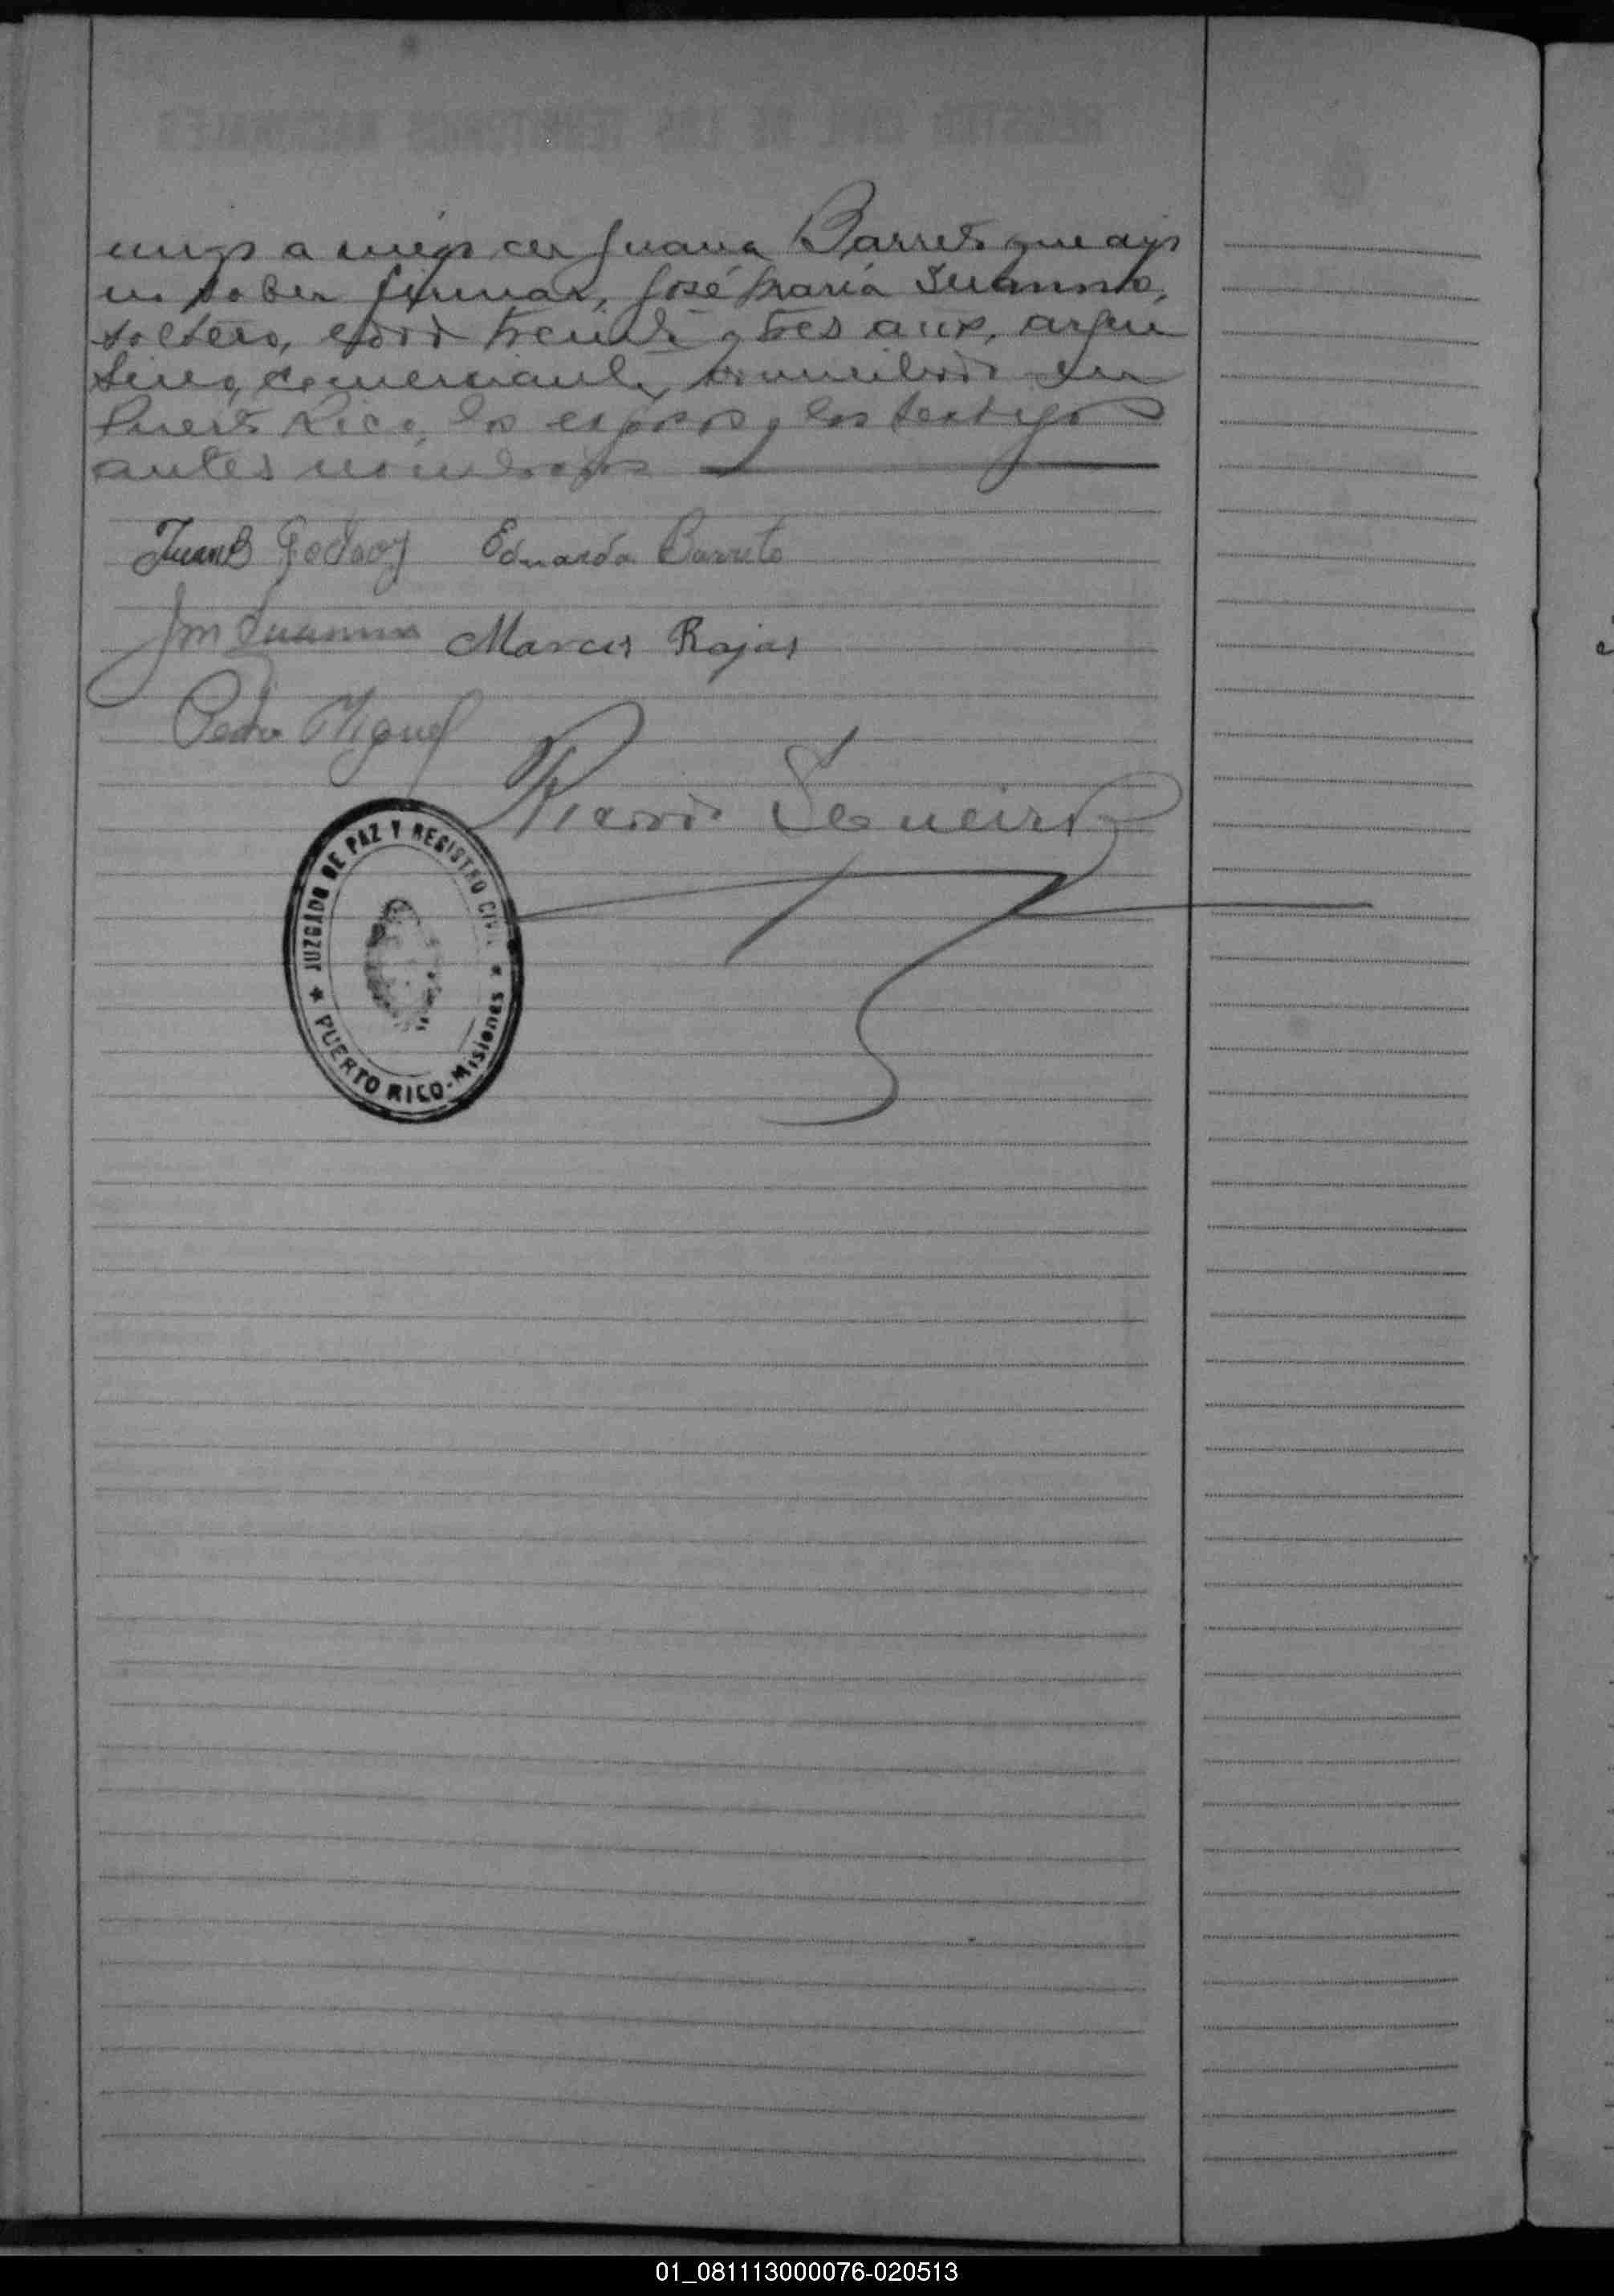 migo a ruego de Juana Barreto que dijo
no saber firmar, José María Juanma,
soltero, edad treinta y tres años, argen
tino, comerciante, domiciliado en
Puerto Rico, los esposos y los testigos
antes nombrados
Juan B Godoy Eduarda Barreto
Jm Marcos Rojas
Pedro Miguel
Ricardo
JUZGADO DE PAZ Y REGISTRO CIVIL
PUERTO RICO-Misiones
01_081113000076-020513